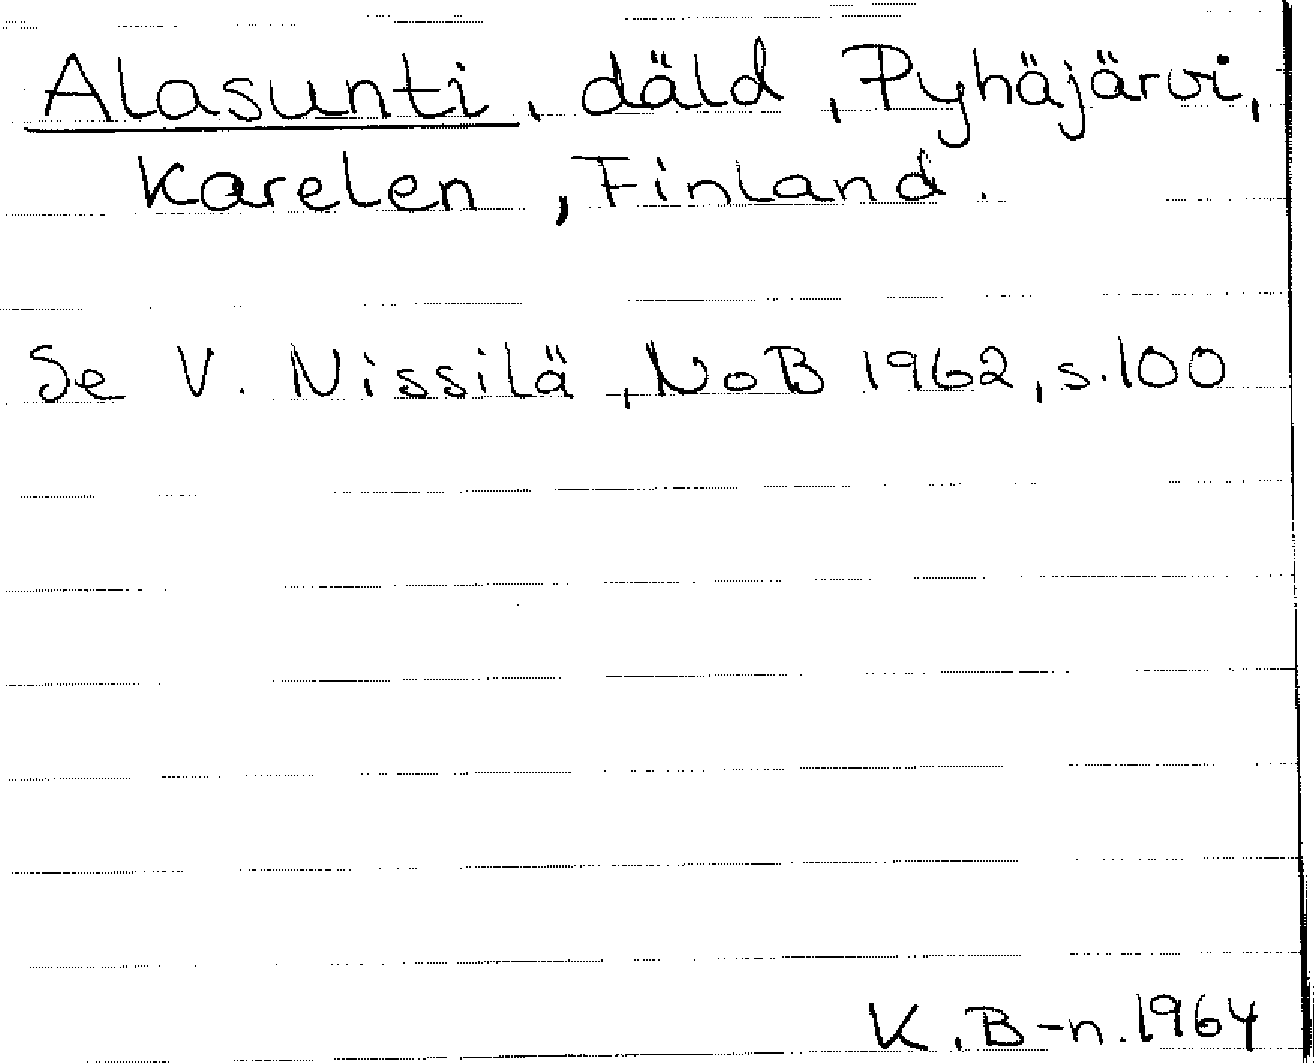 Alasunti, däld, Pyhäjärvi,
Karelen, Finland.
Se V. Nissilä, NoB 1962, s.100
K.B-n.1964